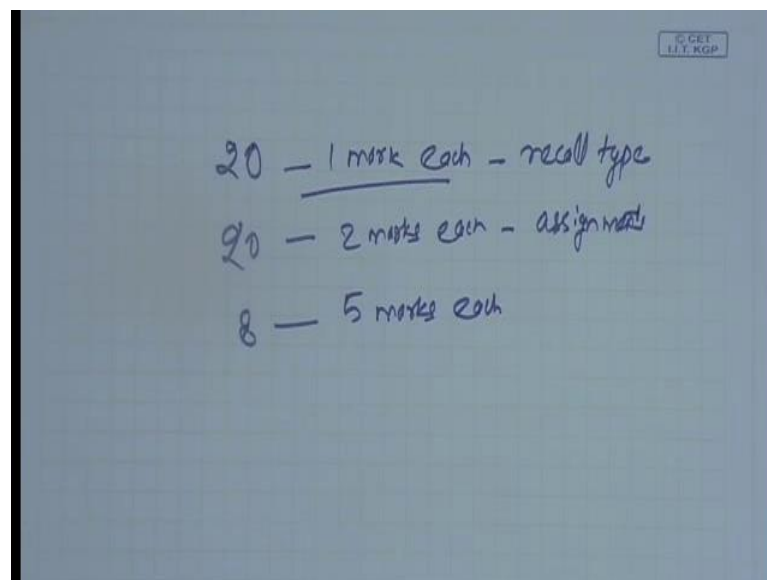 © CET
I.I.T. KGP
20 — 1 mark each - recall type
20 — 2 marks each - assignments
8 — 5 marks each